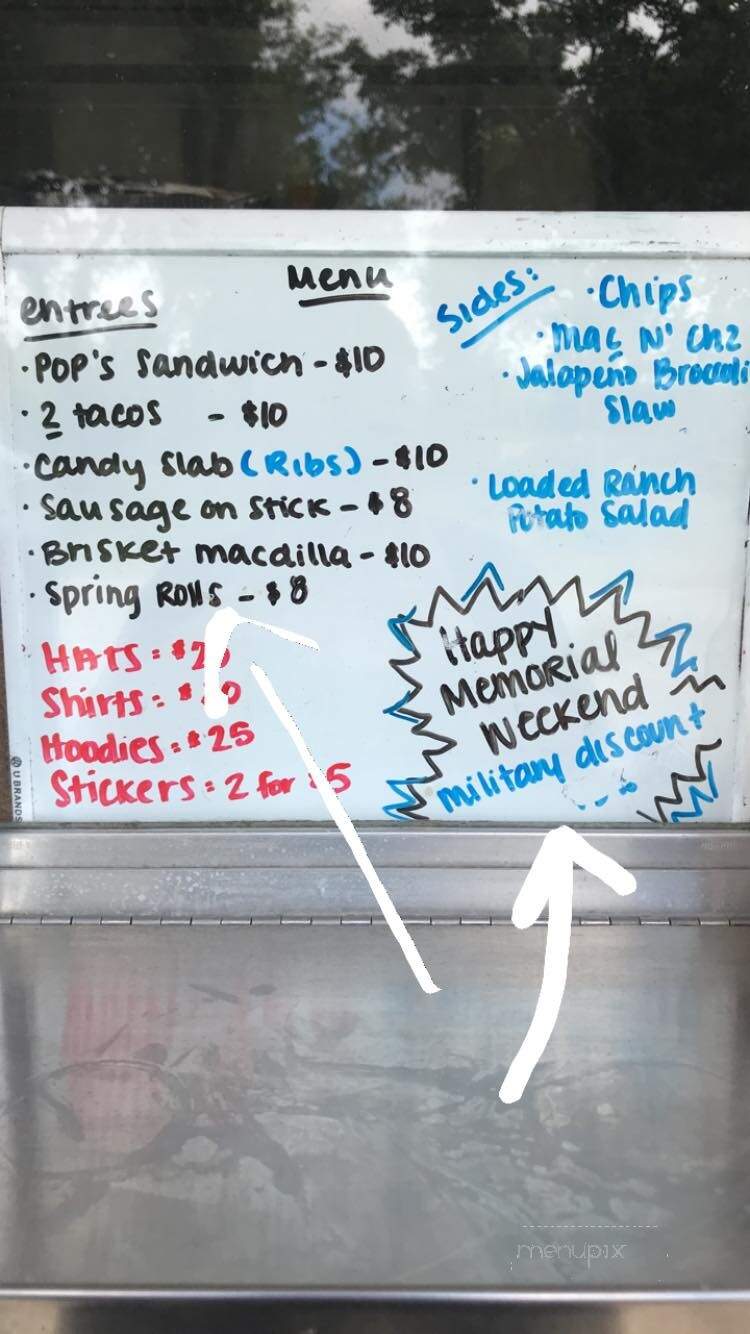 Menu
entrees
• Pop's Sandwich - $10
• 2 tacos - $10
• Candy Slab (Ribs) - $10
• Sausage on Stick - $8
• Brisket macdilla - $10
• Spring Rolls - $8
Hats = $20
Shirts =
Hoodies = $25
Stickers = 2 for $5
Sides:
• Chips
• Mac N' Chz
• Jalapeño Broccoli
Slaw
• Loaded Ranch
Potato Salad
Happy
Memorial
Weekend
military discount
U BRANDS
menupix